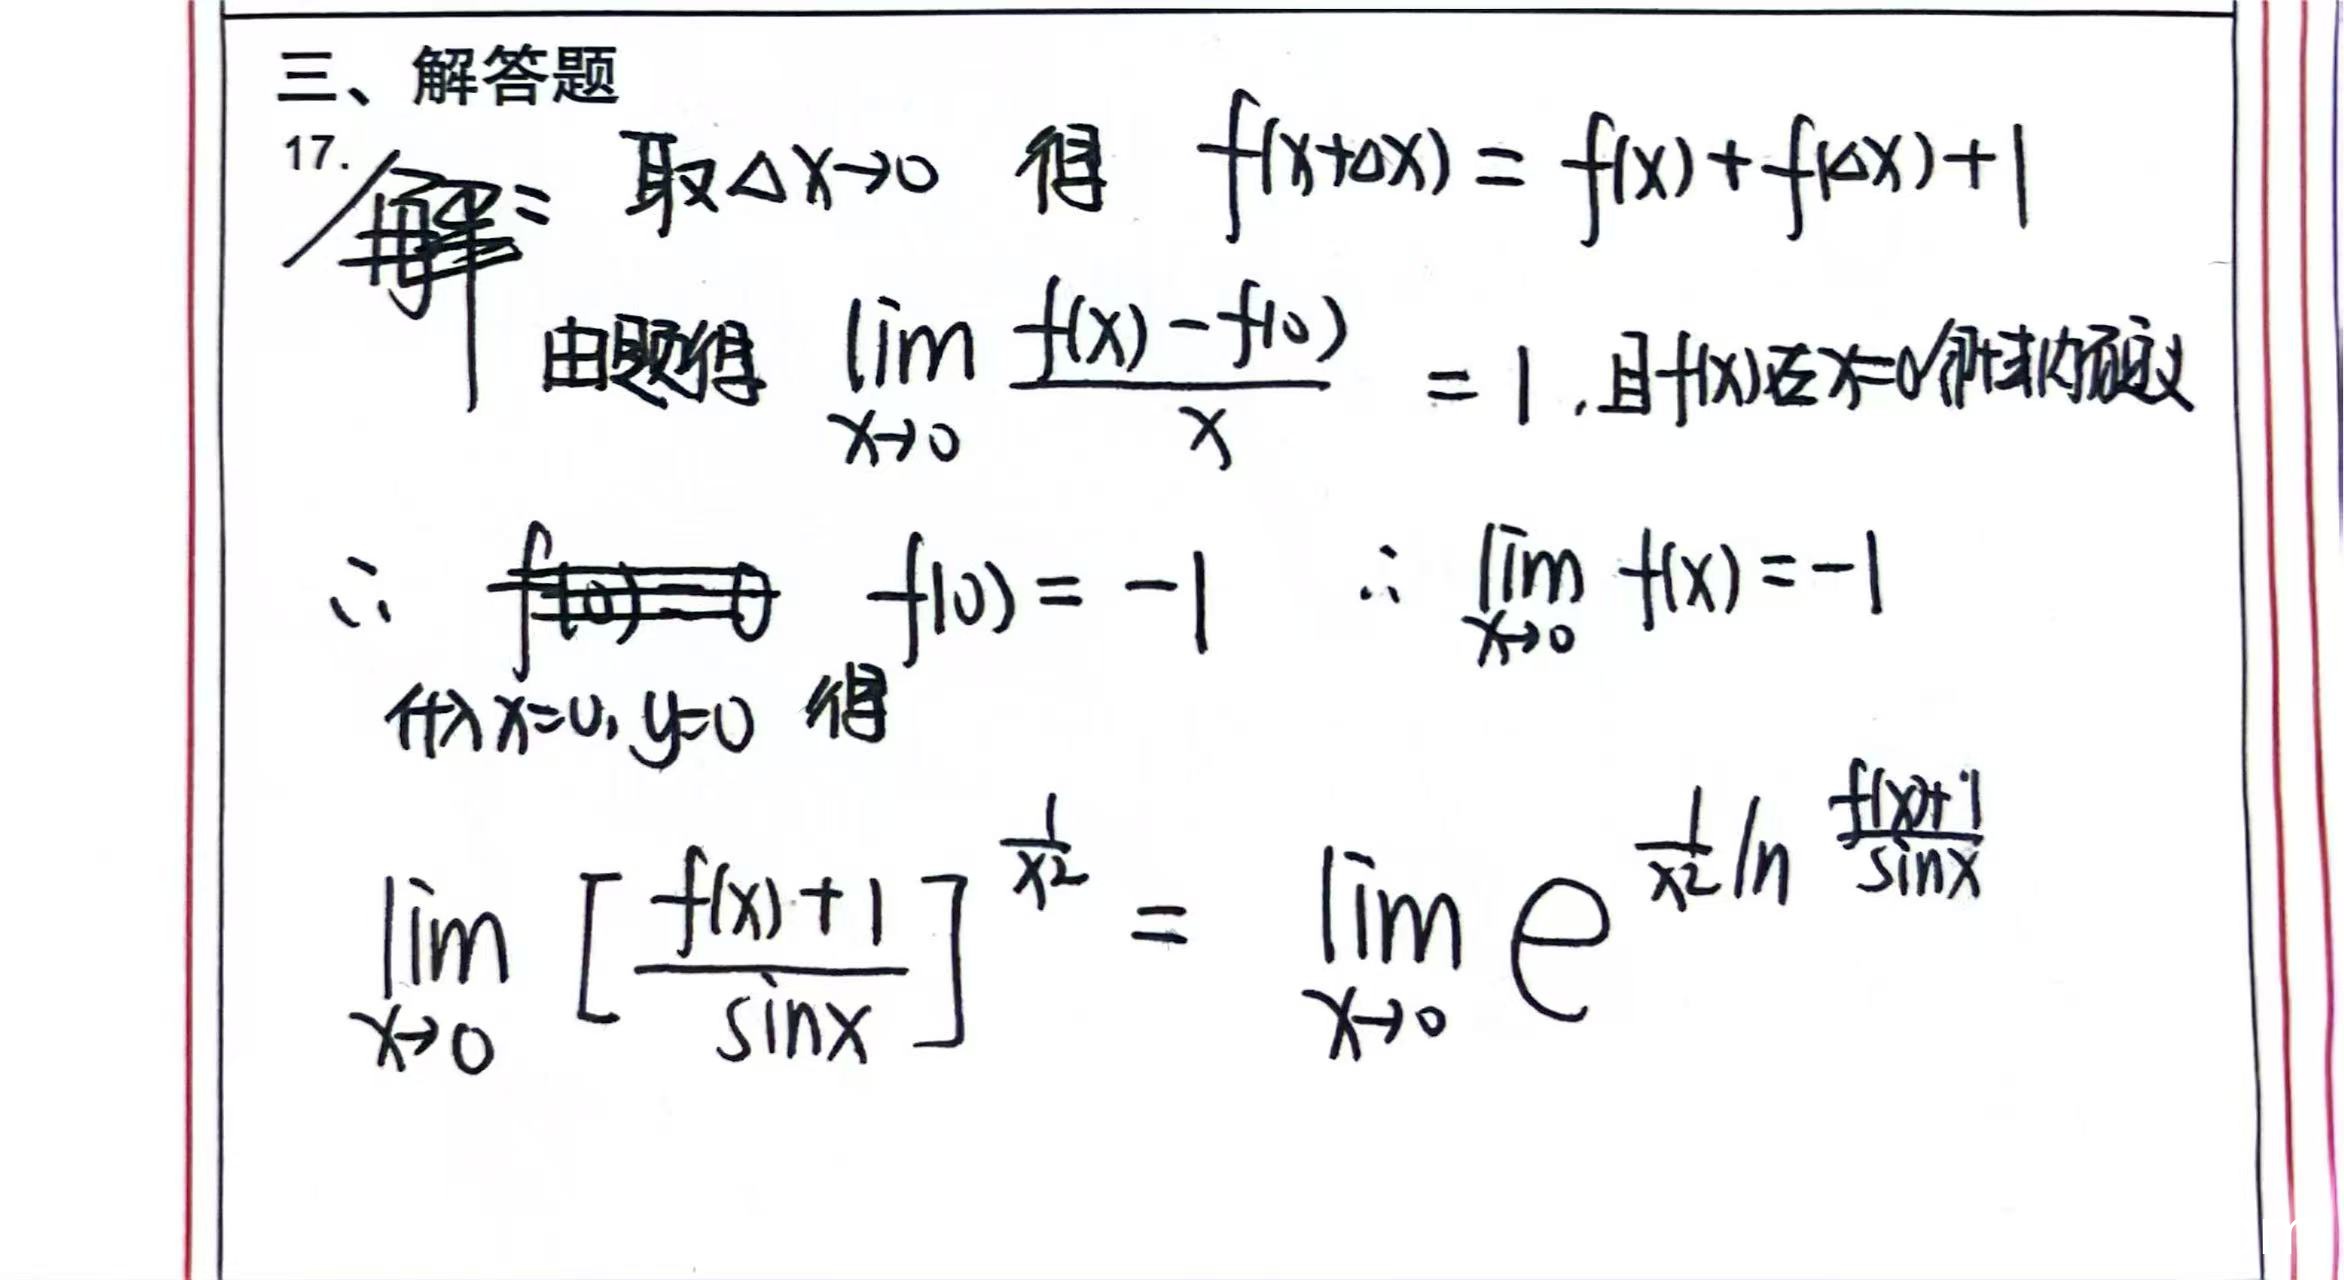 三、解答题
17.
解: 取Δx→0 得 f(x+Δx) = f(x)+f(Δx)+1
由题得 lim x→0 (f(x)-f(0))/x = 1,且f(x)在x=0
∴ f(0)=-1 ∴ lim x→0 f(x)=-1
代入x=0, y=0 得
lim x→0 [(f(x)+1)/sinx]^(1/x²) = lim x→0 e^(1/x² ln (f(x)+1)/sinx)